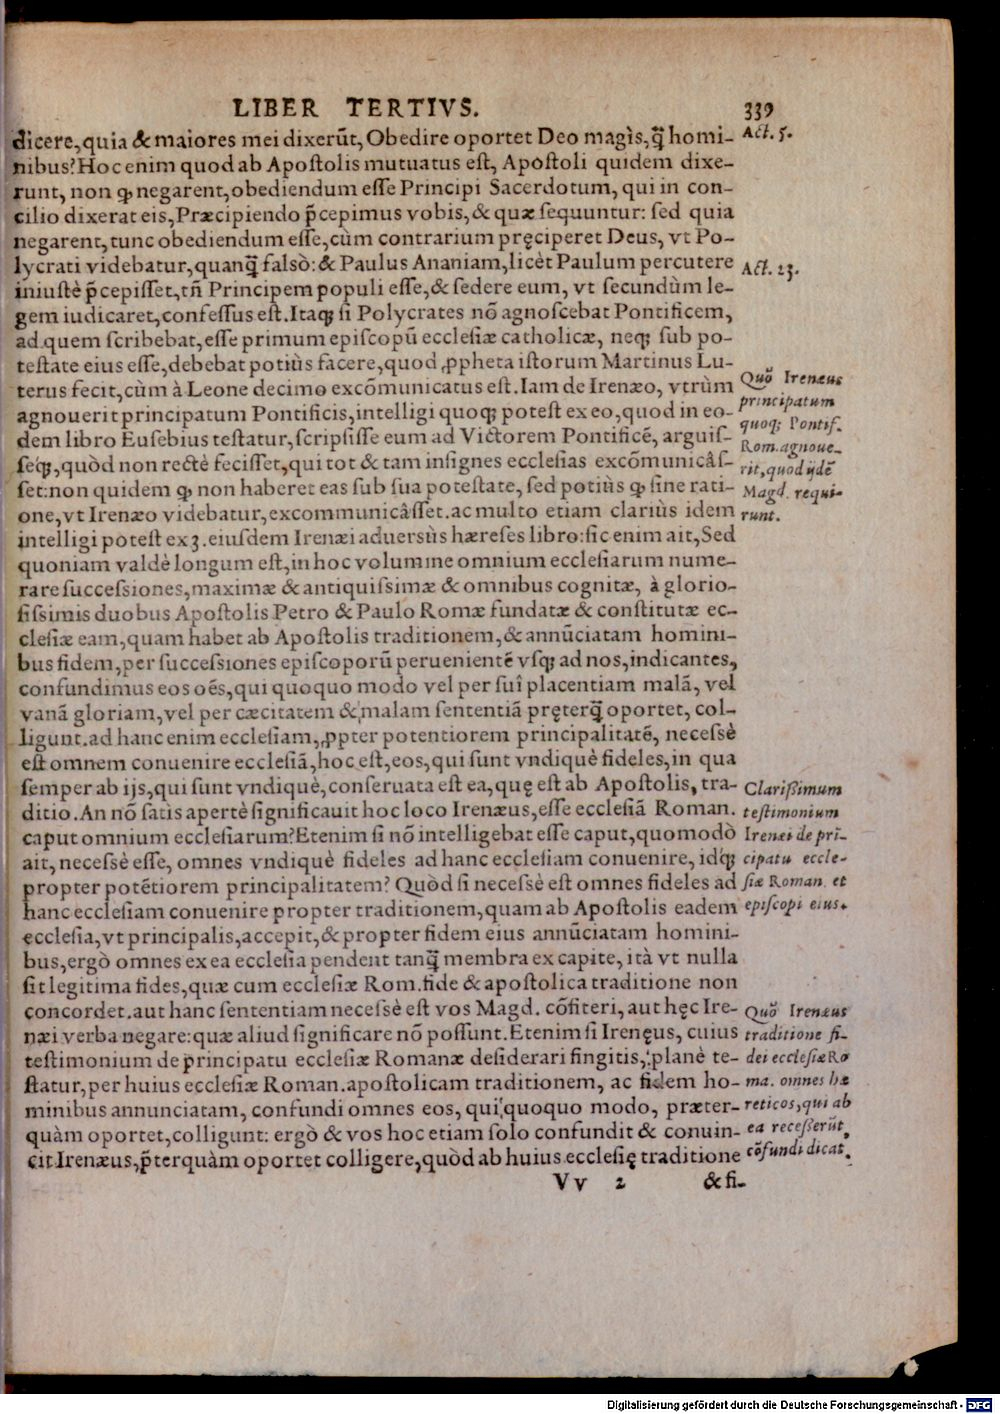 LIBER TERTIVS. 339
dicere,quia & maiores mei dixerūt, Obedire oportet Deo magìs,q̃ homi-
nibus? Hoc enim quod ab Apostolis mutuatus est, Apostoli quidem dixe-
runt, non ꝙ negarent,obediendum esse Principi Sacerdotum, qui in con-
cilio dixerat eis,Præcipiendo p̃cepimus vobis,& quæ sequuntur: sed quia
negarent,tunc obediendum esse,cùm contrarium pręciperet Deus, vt Po-
lycrati videbatur,quanq̃ falsò: & Paulus Ananiam,licèt Paulum percutere
iniustè p̃cepisset,tñ Principem populi esse,& sedere eum, vt secundùm le-
gem iudicaret,confessus est.Itaq; si Polycrates nō agnoscebat Pontificem,
ad quem scribebat,esse primum episcopū ecclesiæ catholicæ, neq; sub po-
testate eius esse,debebat potiùs facere,quod ꝓpheta istorum Martinus Lu-
terus fecit,cùm à Leone decimo excōmunicatus est.Iam de Irenæo, vtrùm
agnouerit principatum Pontificis,intelligi quoq; potest ex eo,quod in eo-
dem libro Eusebius testatur,scripsisse eum ad Victorem Pontificē, arguis-
seq;,quòd non rectè fecisset,qui tot & tam insignes ecclesias excōmunicâs-
set:non quidem ꝙ non haberet eas sub sua potestate, sed potiùs ꝙ sine rati-
one,vt Irenæo videbatur,excommunicâsset.ac multo etiam clariùs idem
intelligi potest ex 3.eiusdem Irenæi aduersùs hæreses libro:sic enim ait,Sed
quoniam valdè longum est,in hoc volumine omnium ecclesiarum nume-
rare successiones,maximæ & antiquissimæ & omnibus cognitæ, à glorio-
sissimis duobus Apostolis Petro & Paulo Romæ fundatæ & constitutæ ec-
clesiæ eam,quam habet ab Apostolis traditionem,& annūciatam homini-
bus fidem,per successiones episcoporū peruenientē vsq; ad nos,indicantes,
confundimus eos oēs,qui quoquo modo vel per suî placentiam malā, vel
vanā gloriam,vel per cæcitatem & malam sententiā pręterq̃ oportet, col-
ligunt.ad hanc enim ecclesiam,ꝓpter potentiorem principalitatē, necessè
est omnem conuenire ecclesiā,hoc est,eos,qui sunt vndiquè fideles,in qua
semper ab ijs,qui sunt vndiquè,conseruata est ea,quę est ab Apostolis, tra-
ditio.An nō satis apertè significauit hoc loco Irenæus,esse ecclesiā Roman.
caput omnium ecclesiarum?Etenim si nō intelligebat esse caput,quomodò
ait, necessè esse, omnes vndiquè fideles ad hanc ecclesiam conuenire, idq́;
propter potētiorem principalitatem? Quòd si necessè est omnes fideles ad
hanc ecclesiam conuenire propter traditionem,quam ab Apostolis eadem
ecclesia,vt principalis,accepit,& propter fidem eius annūciatam homini-
bus,ergò omnes ex ea ecclesia pendent tanq̃ membra ex capite, ità vt nulla
sit legitima fides,quæ cum ecclesiæ Rom.fide & apostolica traditione non
concordet.aut hanc sententiam necessè est vos Magd. cōfiteri, aut hęc Ire-
næi verba negare:quæ aliud significare nō possunt.Etenim si Irenęus, cuius
testimonium de principatu ecclesiæ Romanæ desiderari fingitis, planè te-
statur,per huius ecclesiæ Roman.apostolicam traditionem, ac fidem ho-
minibus annunciatam, confundi omnes eos, qui quoquo modo, præter-
quàm oportet,colligunt: ergò & vos hoc etiam solo confundit & conuin-
cit Irenæus,p̃terquàm oportet colligere,quòd ab huius ecclesię traditione
Vv 2 & fi-
Act. 5.
Act. 23.
Quō Irenæus
principatum
quoq; Pontif.
Rom.agnoue-
rit,quod ijdē
Magd. requi-
runt.
Clarißimum
testimonium
Irenæi de prī-
cipatu eccle-
siæ Roman. et
episcopi eius.
Quō Irenæus
traditione fi-
dei ecclesiæ Ro
ma. omnes hæ
reticos,qui ab
ea receßerūt,
cōfundi dicat.
Digitalisierung gefördert durch die Deutsche Forschungsgemeinschaft - DFG